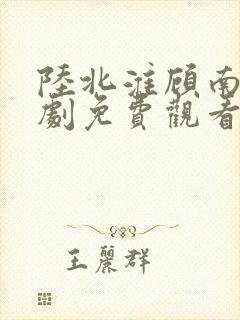 陸北淮顧南
劇免費觀看
王麗群